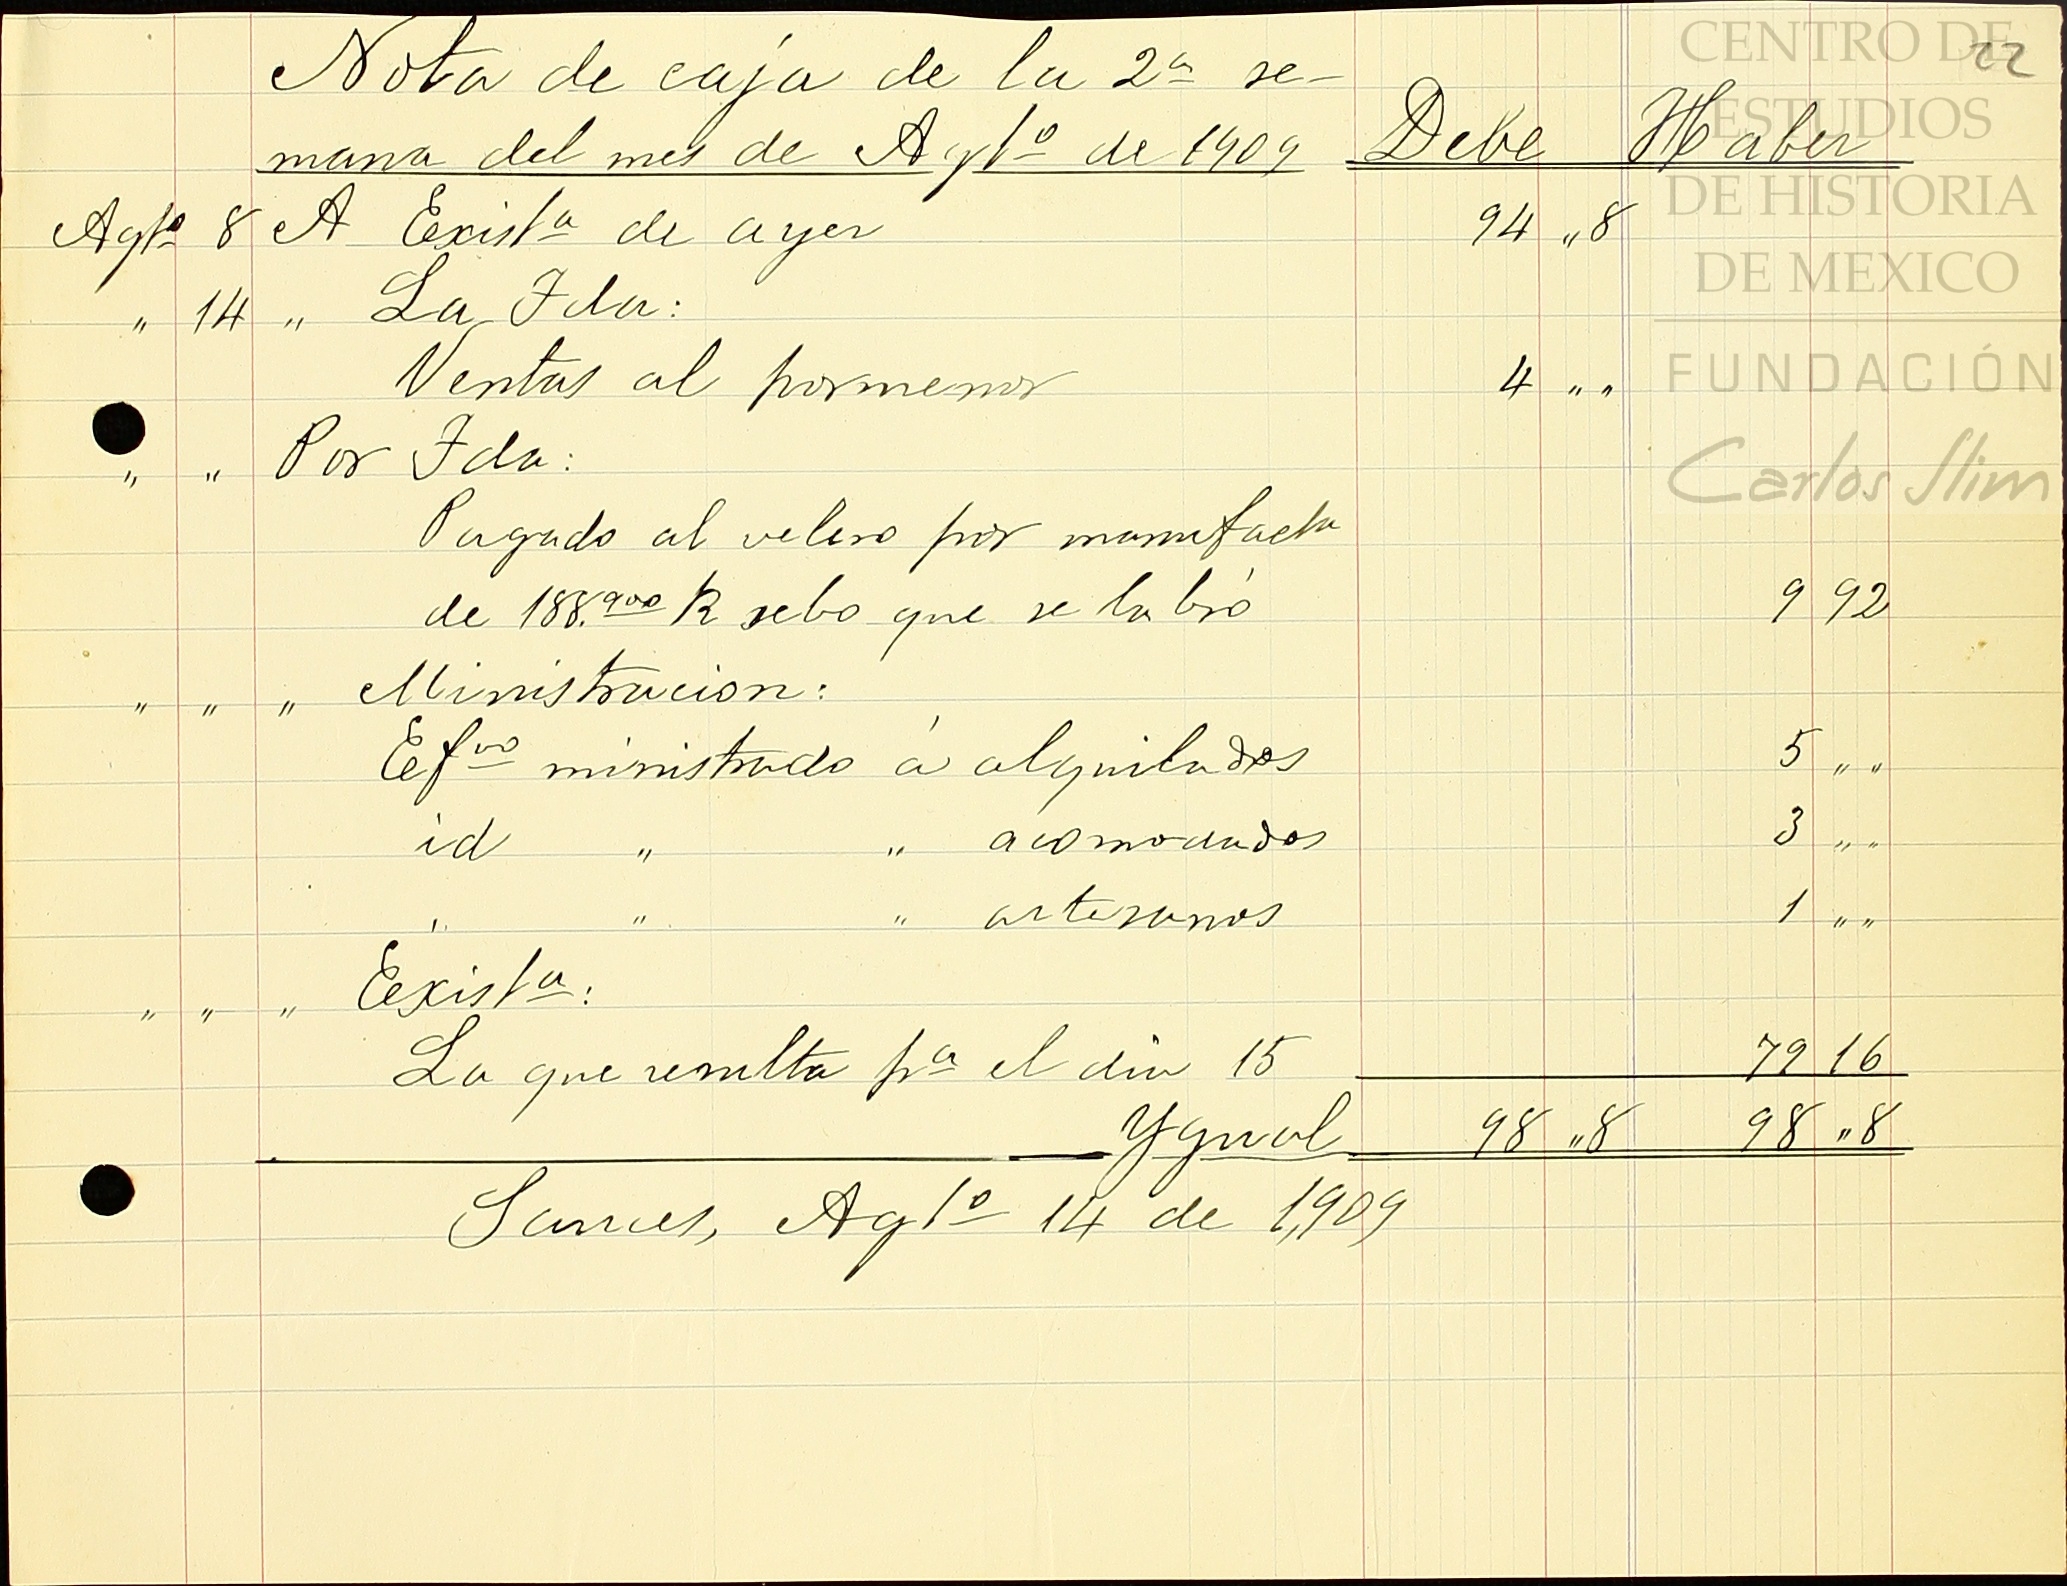 22
Nota de caja de la 2ª se-
mana del mes de Agtº de 1909 Debe Haber
Agtº 8 A Existª de ayer 94 „8
„ 14 „ La Fda:
Ventas al pormenor 4 „„
„ „ Por Fda:
Pagado al velero por manufacta
de 188.900 K sebo que se labró 9 92
„ „ „ Ministracion:
Efvo ministrado á alquilados 5 „„
id „ „ acomodados 3 „„
„ „ „ artesanos 1 „„
„ „ „ Existª:
La que resulta pª el dia 15 79 16
Ygual 98 „8 98 „8
Sauces, Agtº 14 de 1,909
CENTRO DE
ESTUDIOS
DE HISTORIA
DE MEXICO
FUNDACIÓN
Carlos Slim